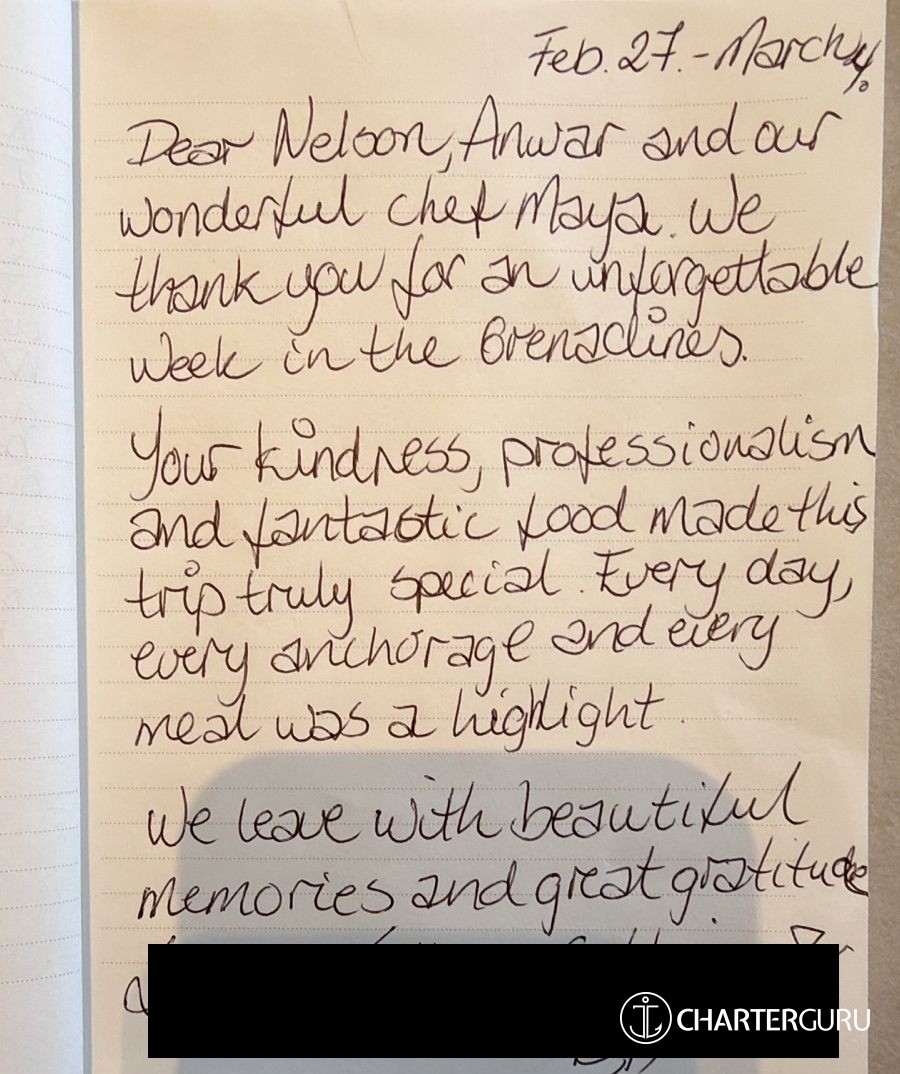 Feb. 27. - March 4.
Dear Nelson, Anwar and our
wonderful chef Maya. We
thank you for an unforgettable
week in the Grenadines.
Your kindness, professionalism
and fantastic food made this
trip truly special. Every day,
every anchorage and every
meal was a highlight.
We leave with beautiful
memories and great gratitude
CHARTERGURU